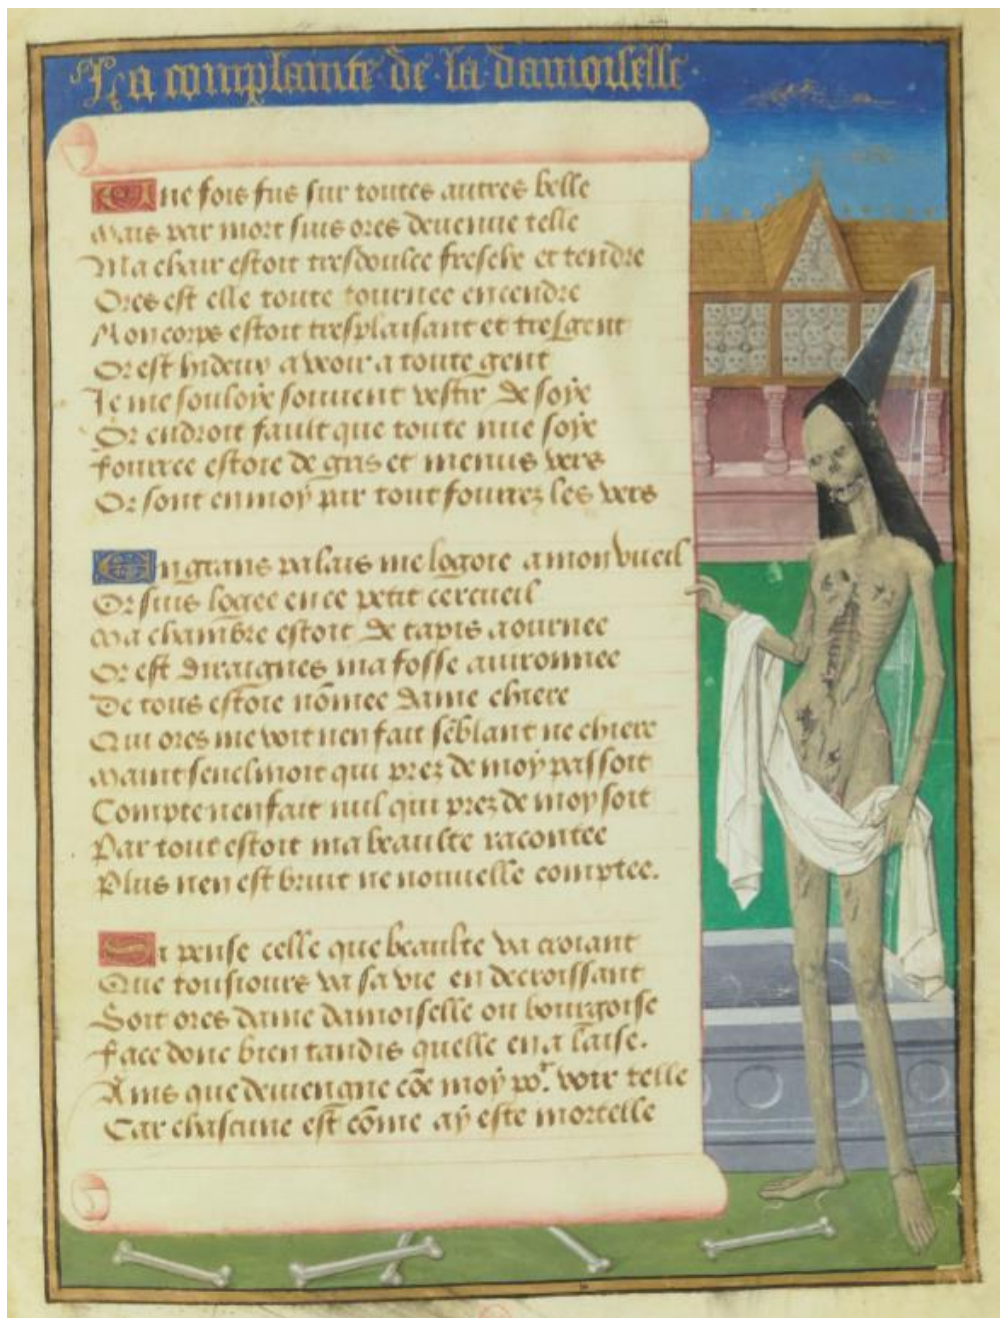 La complainte de la damoiselle
Une fois fus sur toutes autres belle
Mais par mort suis ores devenue telle
Ma chair estoit tresdoulce fresche et tendre
Ores est elle toute tournee en cendre
Mon corps estoit tresplaisant et tresgent
Or est hideux a veoir a toute gent
Je me souloye souvent vestir de soye
Or endroit fault que toute nue soye
fourree estoie de gris et menus vers
Or sont en moy par tout fourrez les vers
En grans palais me logoie a mon vueil
Or suis logee en ce petit cercueil
Ma chambre estoit de tapis aournee
Or est diraignes ma fosse avironnee
De tous estoie nōmee dame chiere
Qui ores me voit nen fait sēblant ne chiere
Maint senclinoit qui prez de moy passoit
Compte nen fait nul qui prez de moy soit
Par tout estoit ma beaulte racontee
Plus nen est bruit ne nouvelle comptee.
Si pense celle que beaulte va croiant
Que tousiours va sa vie en decroissant
Soit ores dame damoiselle ou bourgoise
face donc bien tandis quelle en a laise.
Ains que deviengne cōe moy po.r voir telle
Car chascune est cōme ay este mortelle